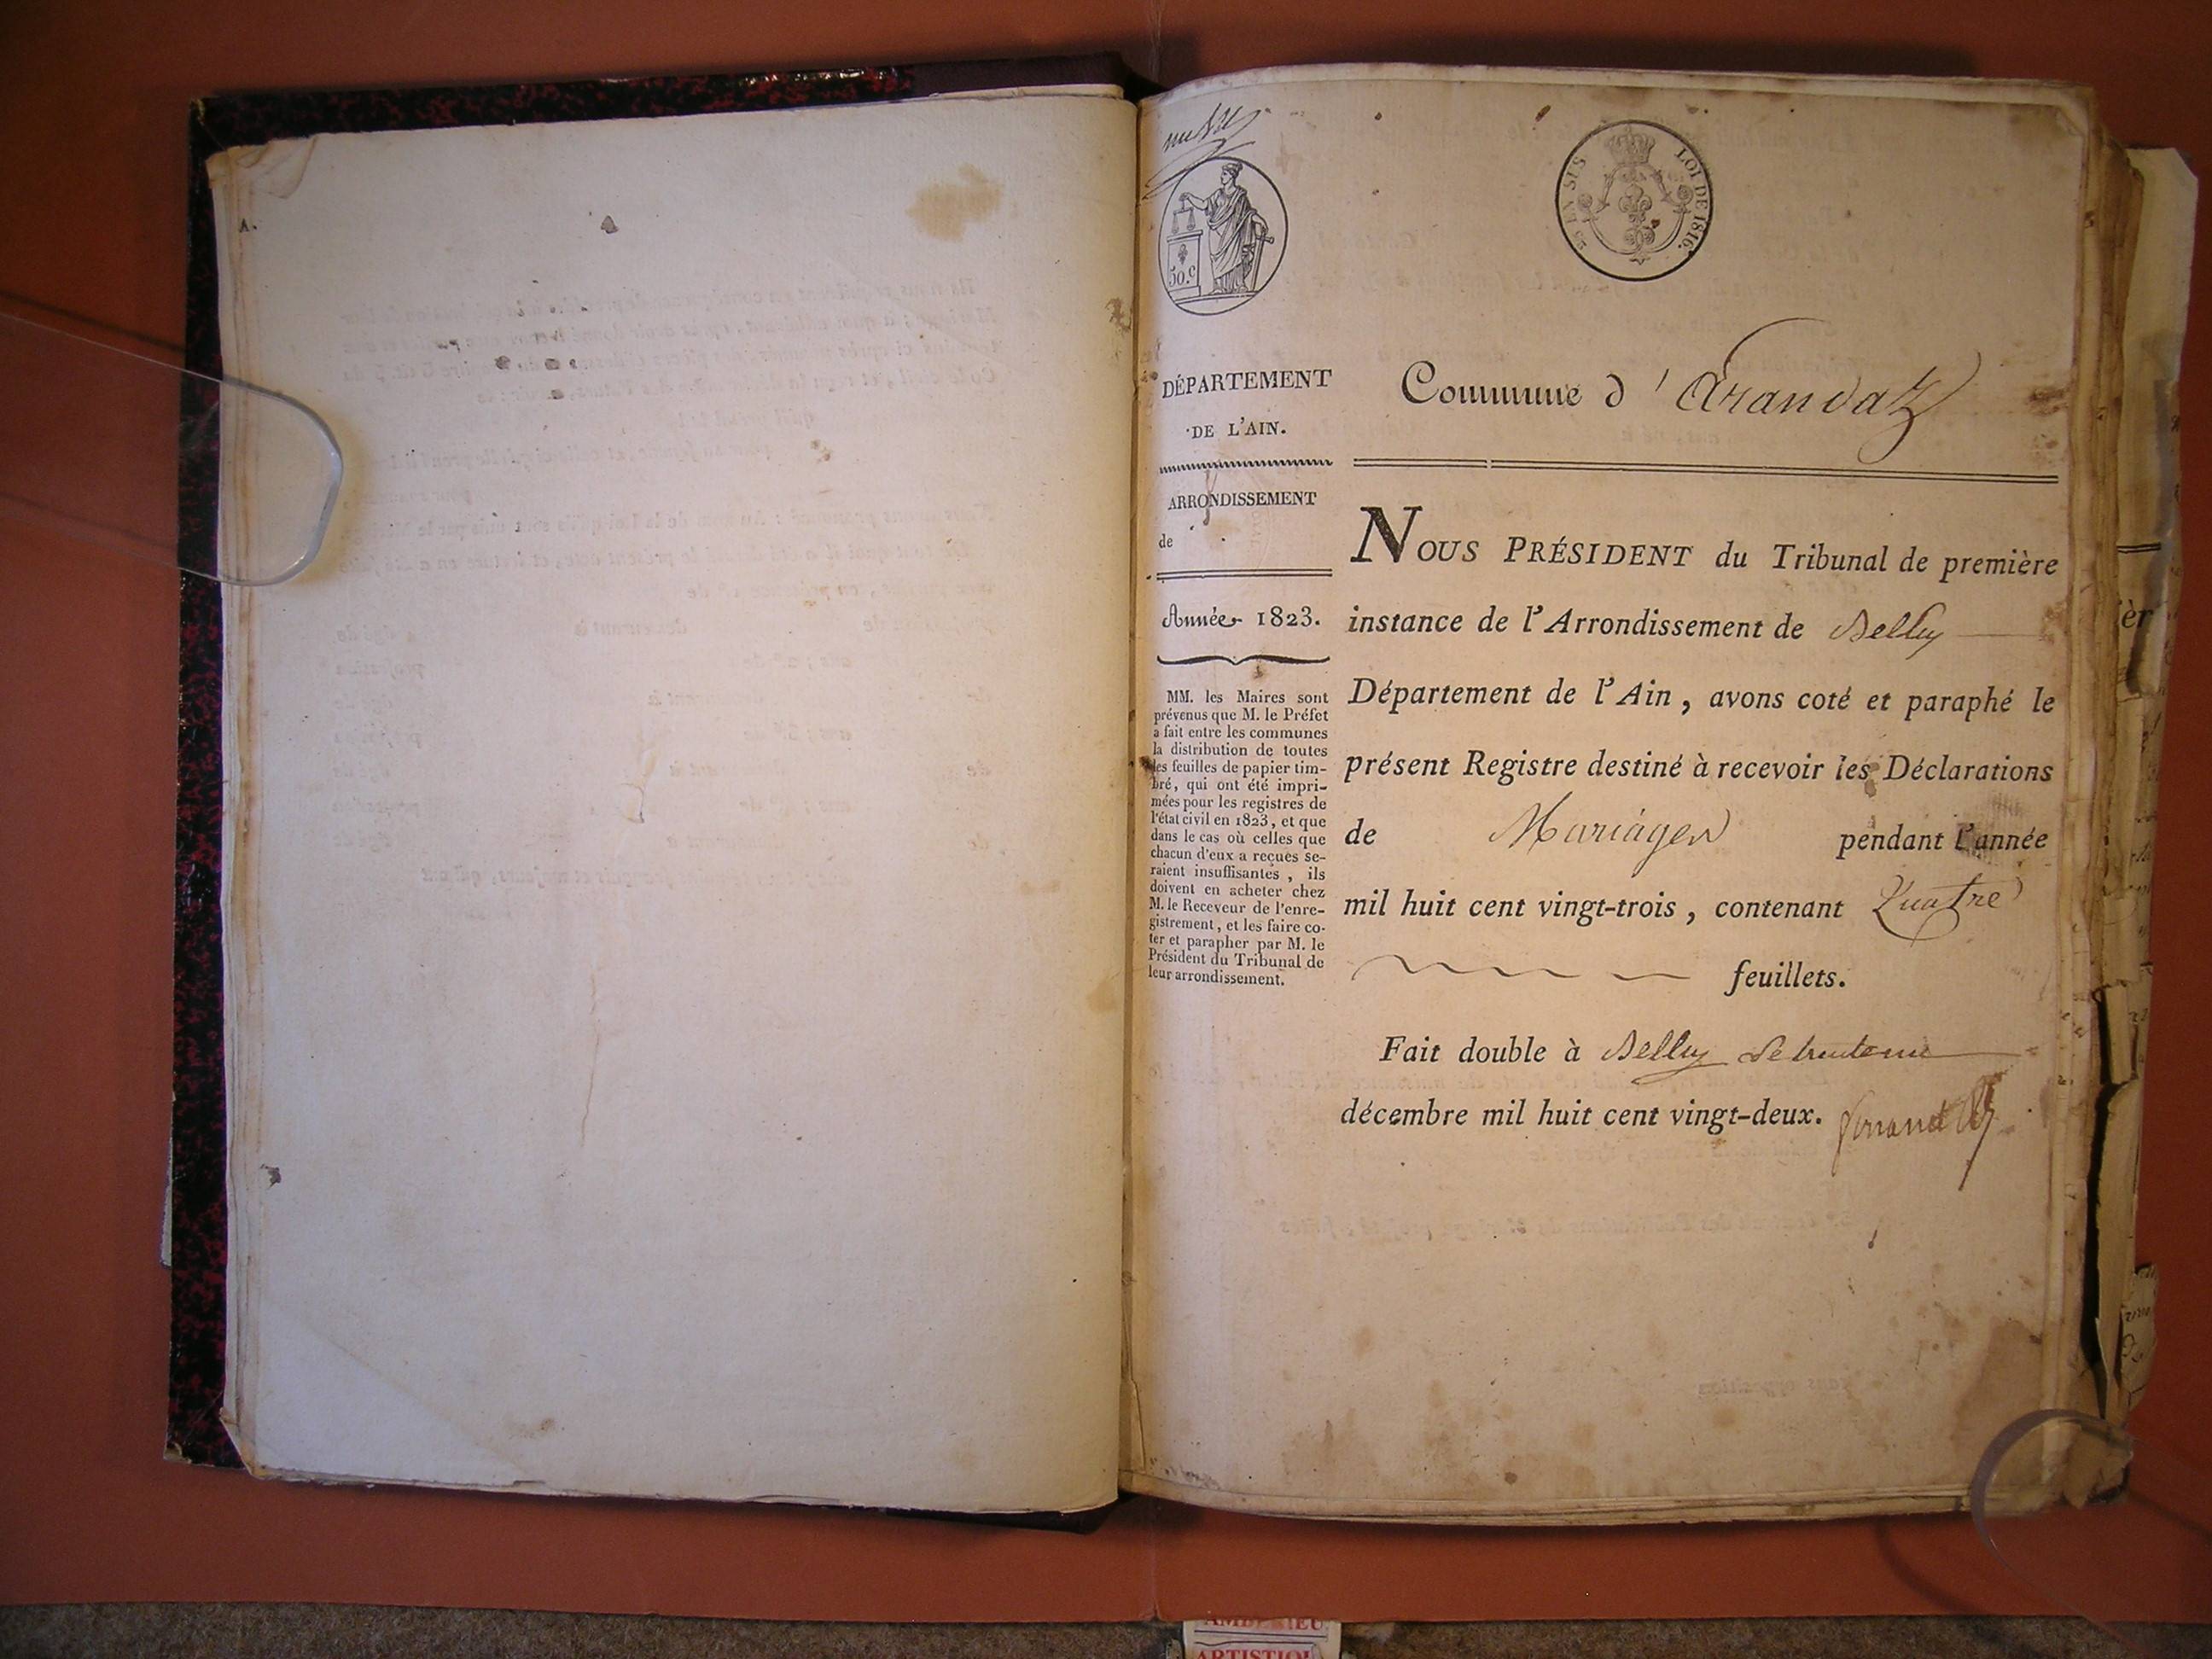 50.c
EN SUS
LOI DE 1816.
DÉPARTEMENT
DE L'AIN.
ARRONDISSEMENT
de
Année 1823.
MM. les Maires sont
prévenus que M. le Préfet
a fait entre les communes
la distribution de toutes
les feuilles de papier tim-
bré, qui ont été impri-
mées pour les registres de
l'état civil en 1823, et que
dans le cas où celles que
chacun d'eux a reçues se-
raient insuffisantes, ils
doivent en acheter chez
M. le Receveur de l'enre-
gistrement, et les faire co-
ter et parapher par M. le
Président du Tribunal de
leur arrondissement.
Commune d'Arandaz
NOUS PRÉSIDENT du Tribunal de première
instance de l'Arrondissement de Belley
Département de l'Ain, avons coté et paraphé le
présent Registre destiné à recevoir les Déclarations
de Mariages pendant l'année
mil huit cent vingt-trois, contenant Quatre
feuillets.
Fait double à Belley le trente un
décembre mil huit cent vingt-deux.
AMBERIEU
ARTISTIQU